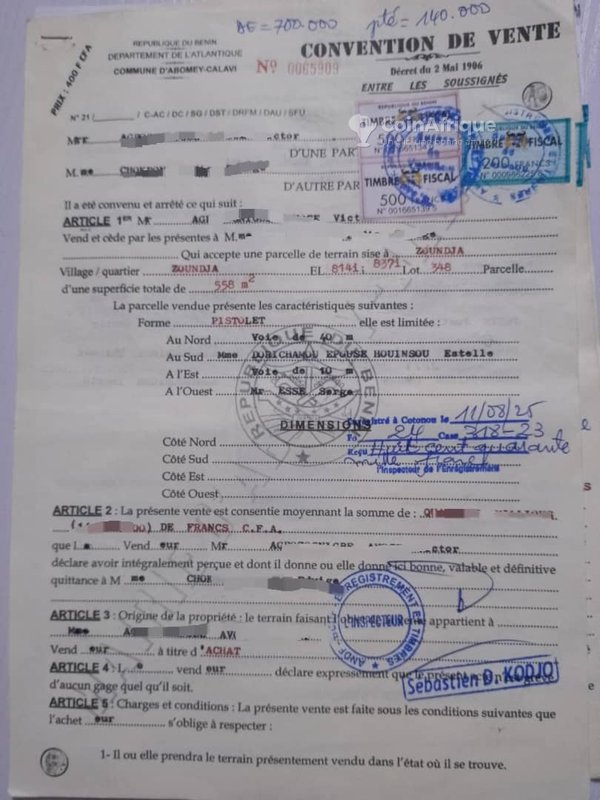 DE = 700.000 pté = 140.000
PRIX : 400 F CFA
REPUBLIQUE DU BENIN
DEPARTEMENT DE L'ATLANTIQUE
COMMUNE D'ABOMEY-CALAVI
Nº 0065909
CONVENTION DE VENTE
Décret du 2 Mai 1906
ENTRE LES SOUSSIGNÉS
N° 21 / C-AC / DC / SG / DST / DRFM / DAU / SFU
REPUBLIQUE DU BENIN
TIMBRE FISCAL
500
TIMBRE FISCAL
500
N° 001665139 5
TIMBRE FISCAL
200 FRANCS
CoinAfrique
Mr ctor
D'UNE PART
M. me
D'AUTRE PAR
Il a été convenu et arrêté ce qui suit :
ARTICLE 1ER Mr AGI Vict
Vend et cède par les présentes à M.me
Qui accepte une parcelle de terrain sise à ZOUNDJA
Village / quartier ZOUNDJA EL 8141; 8371 Lot 348 Parcelle
d'une superficie totale de 558 m²
La parcelle vendue présente les caractéristiques suivantes :
Forme PISTOLET elle est limitée :
Au Nord Voie de 40 m
Au Sud Mme EPOUSE HOUINSOU Estelle
A l'Est Voie de 10 m
A l'Ouest Mr ESSE Serge
REPUBLIQUE DU BENIN
DIMENSIONS
Enregistré à Cotonou le 11/08/25
Fo 24 Case 318-23
Reçu Huit cent quarante
mille francs
l'Inspecteur de l'Enregistrement
Côté Nord
Côté Sud
Côté Est
Côté Ouest
ARTICLE 2 : La présente vente est consentie moyennant la somme de :
DE FRANCS C.F.A.
que L Vend eur Mr ctor
déclare avoir intégralement perçue et dont il donne ou elle donne ici bonne, valable et définitive
quittance à M me
ARTICLE 3 : Origine de la propriété : le terrain faisant l' appartient à
Mme
Vend eur à titre d'ACHAT
L'INSPECTEUR
ENREGISTREMENT ET TIMBRES
ARTICLE 4 : L e vend eur déclare expressément que le présent
d'aucun gage quel qu'il soit.
Sébastien D. KODJO
ARTICLE 5 : Charges et conditions : La présente vente est faite sous les conditions suivantes que
l'achet eur s'oblige à respecter :
1- Il ou elle prendra le terrain présentement vendu dans l'état où il se trouve.